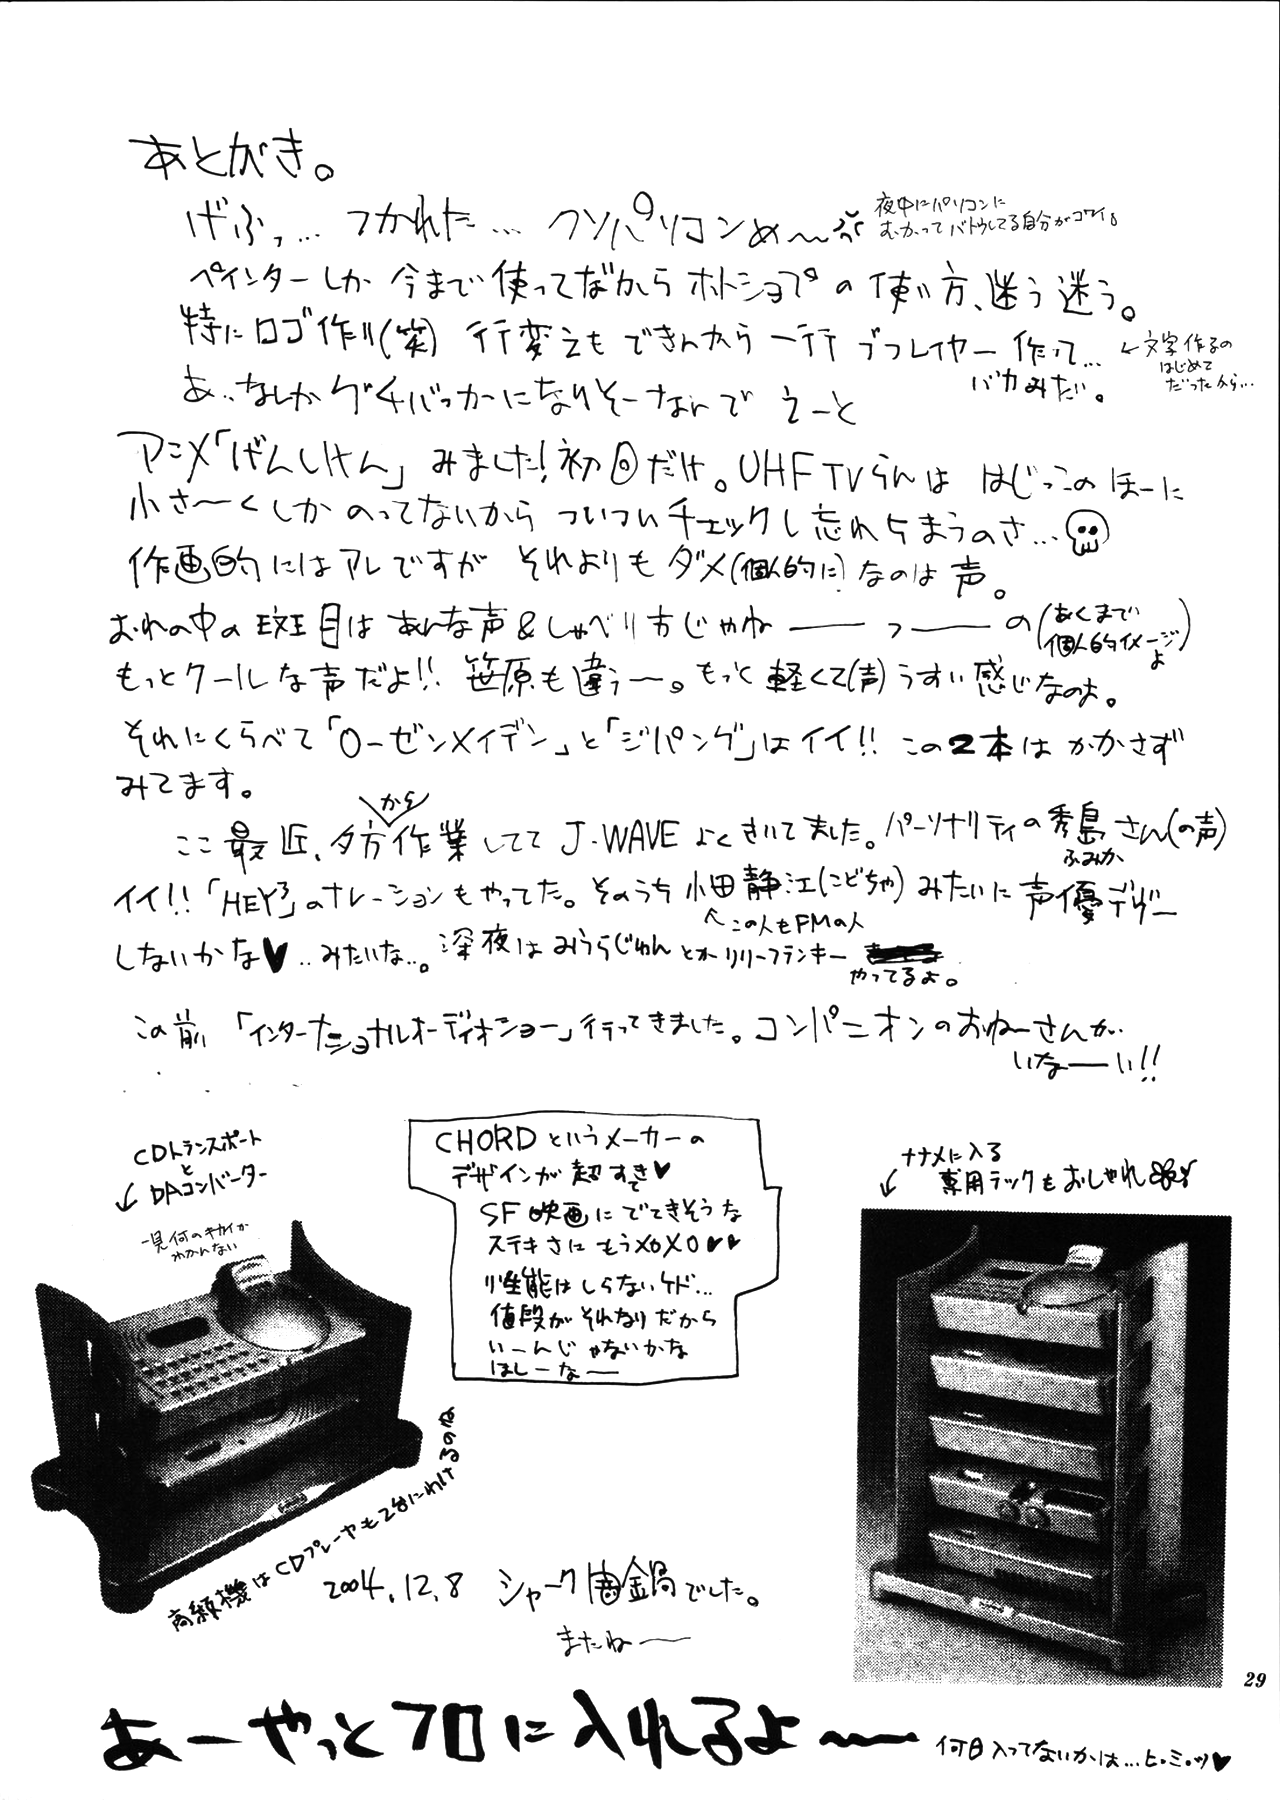 あとがき。
げふっ… つかれた… クソパソコンめ〜
夜中にパソコンに
むかってバトウしてる自分がコワイ。
ペインターしか今まで使ってなかったからホトショプの使い方、迷う迷う。
特にロゴ作り(笑) 行変えもできんから一行づつレイヤー作って…
バカみたい。
←文字作るの
はじめて
だったから…
あ、なんかグチバッカーになりそーなんで えーと
アニメ「げんしけん」みました!初回だけ。UHF TVらんは はじっこのほーに
小さ〜くしかのってないから ついついチェックし忘れちまうのさ…
作画的にはアレですが それよりもダメ(個人的に)なのは声。
おれの中の斑目はあんな声&しゃべり方じゃねーーっーーの(あくまで
個人的イメージ
よ)
もっとクールな声だよ!! 笹原も違うー。もっと軽くて(声)うすい感じなのよ。
それにくらべて「ローゼンメイデン」と「ジパング」はイイ!! この2本は かかさず
みてます。
ここ最近、夕方から作業しててJ-WAVEよくきいてました。パーソナリティの秀島さん(の声)
ふみか
イイ!!「HEY3」のナレーションもやってた。そのうち小田静江(こどちゃ)みたいに声優デビュー
↖この人もFMの人
しないかな♥‥みたいな…。深夜はみうらじゅんとかリリーフランキー
やってるよ。
この前「インターナショナルオーディオショー」行ってきました。コンパニオンのおねーさんが
いなーーい!!
CDトランスポート
と
DAコンバーター
↙
一見何のキカイか
わかんない
CHORDというメーカーの
デザインが超すきて♥
SF映画にでてきそうな
ステキさに もうXOXO♥♥
性能はしらないケド…
値段がそれなりだから
いーんじゃないかな
ほしーなー
ナナメに入る
↙専用ラックもおしゃれ
高級機はCDプレーヤも2台にわけるのね
2004.12.8 シャーク闇鍋でした。
またねー
29
あーやっとフロに入れるよ〜
何日入ってないかは…ヒ・ミ・ツ♥